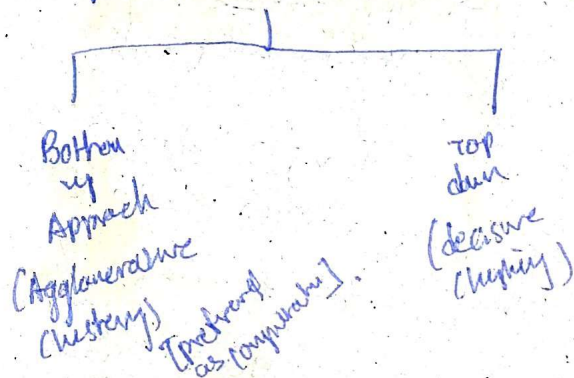 Bottom
up
Approach
(Agglomerative
Clustering)
[preferred
as computative].
Top
down
(decisive
Clustering)